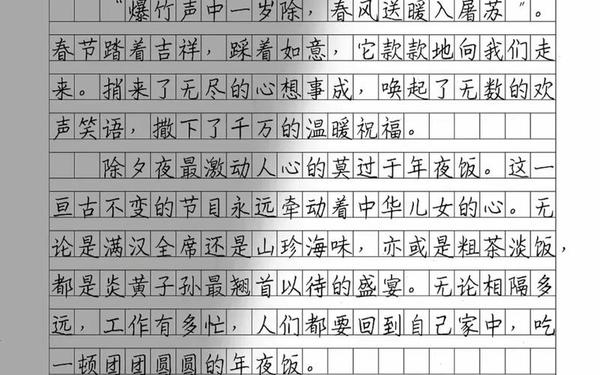 “爆竹声中一岁除，春风送暖入屠苏”。
春节踏着吉祥，踩着如意，它款款地向我们走
来。捎来了无尽的心想事成，唤起了无数的欢
声笑语，撒下了千万的温暖祝福。
除夕夜最激动人心的莫过于年夜饭。这一
亘古不变的节目永远牵动着中华儿女的心。无
论是满汉全席还是山珍海味，亦或是粗茶淡饭，
都是炎黄子孙最翘首以待的盛宴。无论相隔多
远，工作有多忙，人们都要回到自己家中，吃
一顿团团圆圆的年夜饭。